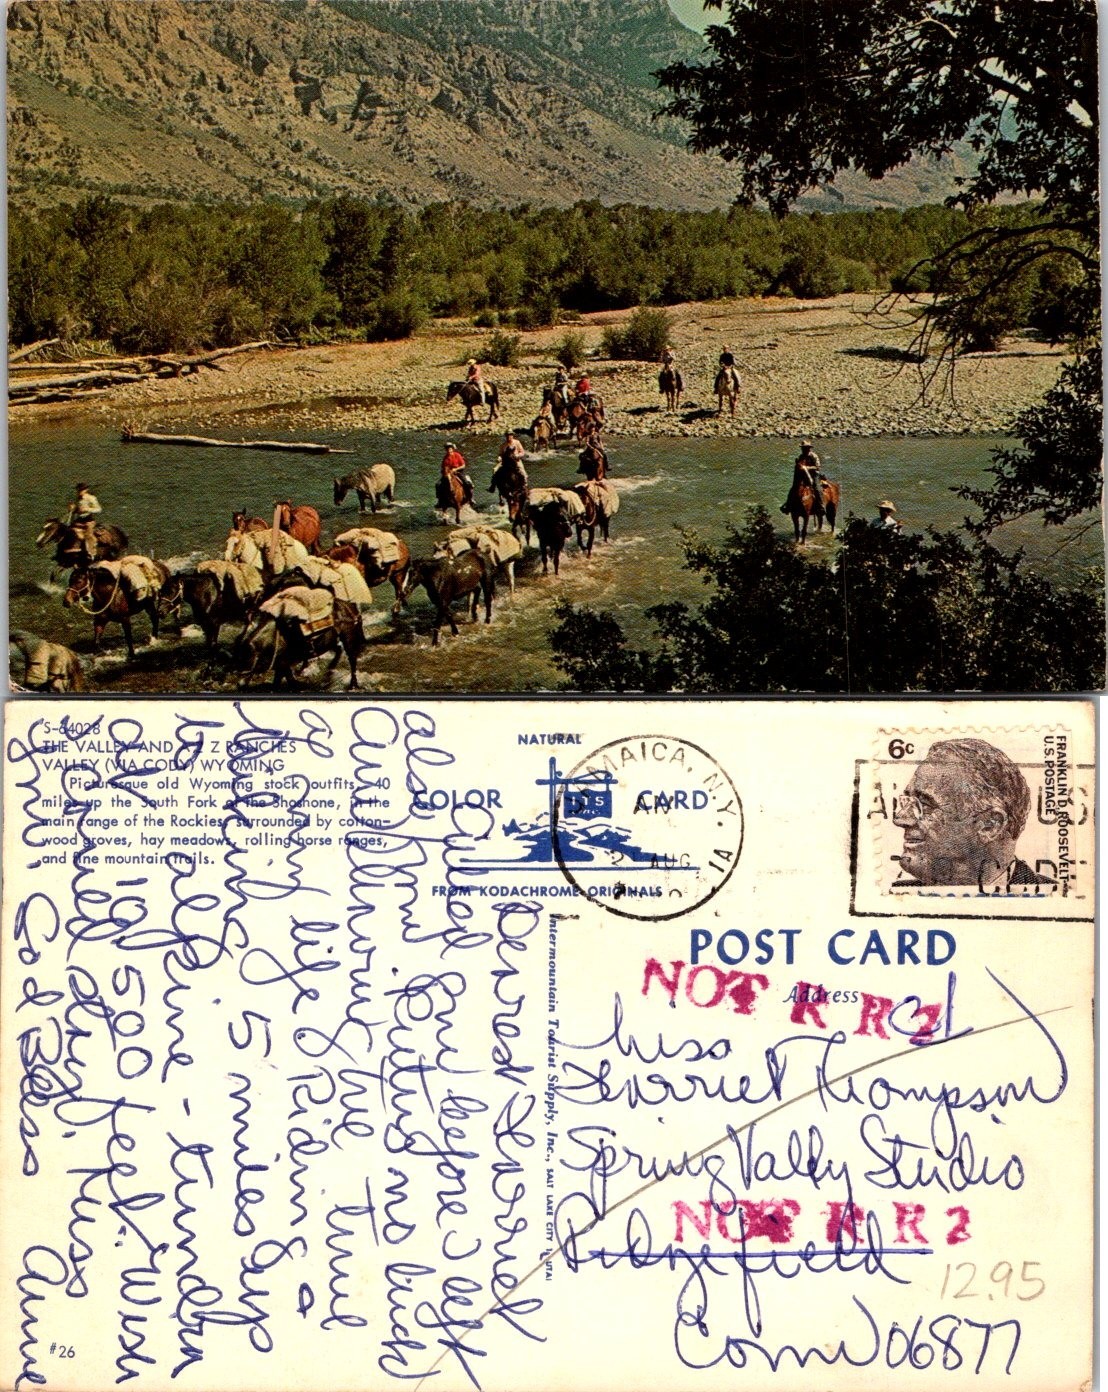 S-64028
THE VALLEY AND A 2 Z RANCHES
VALLEY (VIA CODY) WYOMING
Picturesque old Wyoming stock outfits, 40
miles up the South Fork of the Shoshone, in the
main range of the Rockies, surrounded by cotton-
wood groves, hay meadows, rolling horse ranges,
and fine mountain trails.
NATURAL
COLOR CARD
ITS
FROM KODACHROME ORIGINALS
JAMAICA, N.Y.
AM
AUG
6c
FRANKLIN D. ROOSEVELT
U.S. POSTAGE
POST CARD
Address
NOT R R 2
Miss
Harriet Thompson
Spring Valley Studio
NOT R R 2
Ridgefield
Conn 06877
12.95
Intermountain Tourist Supply, Inc., SALT LAKE CITY 1, UTAH
Dearest Harriet
Called you before I left
also Amy. Getting no luck
Am having the time
of my life Ridin a
5 miles up
timberline - tundra
at 10,500 feet. Wish
you were along. Kiss
God Bless Anne
#26